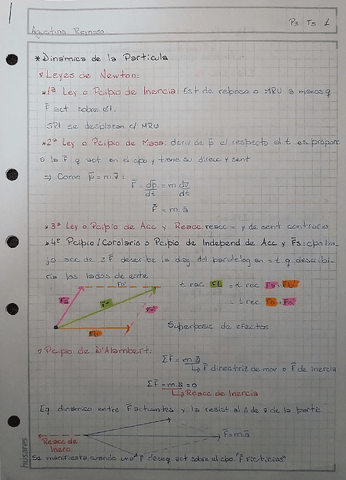 Agostina Reynoso
P3 T5 1
* Dinámica de la Partícula
Leyes de Newton:
• 1ª Ley o Pcipio de Inercia: Est de reposo o MRU a menos q
F act sobre él.
SRI se desplazan c/ MRU
• 2ª Ley o Pcipio de Masa: deriv de p c/ respecto al t es propor
a la F q act en el cpo y tiene su direcc y sent
⇒ Como
F = dp/dt = m dv/dt
F = m.a
• 3ª Ley o Pcipio de Acc y Reacc: reacc = y de sent contrario
• 4º Pcipio/Corolario o Pcipio de Independ de Acc y Fs: cpo ba-
jo acc de ΣF describe la diag del paralelog en = t q describi-
ría los lados de ante
t rec = t rec
= t rec
Superposic de efectos
Pcipio de D'Alambert:
ΣF = m.a
F directriz de mov o F de inercia
ΣF - m.a = 0
Reacc de Inercia
Eq dinámico entre F actuantes y la resist al Δ de a de la partc
Reacc de
Inerc
F = m.a
Se manifiesta cuando una F deseq act sobre el cpo. "F ficticias"
husares